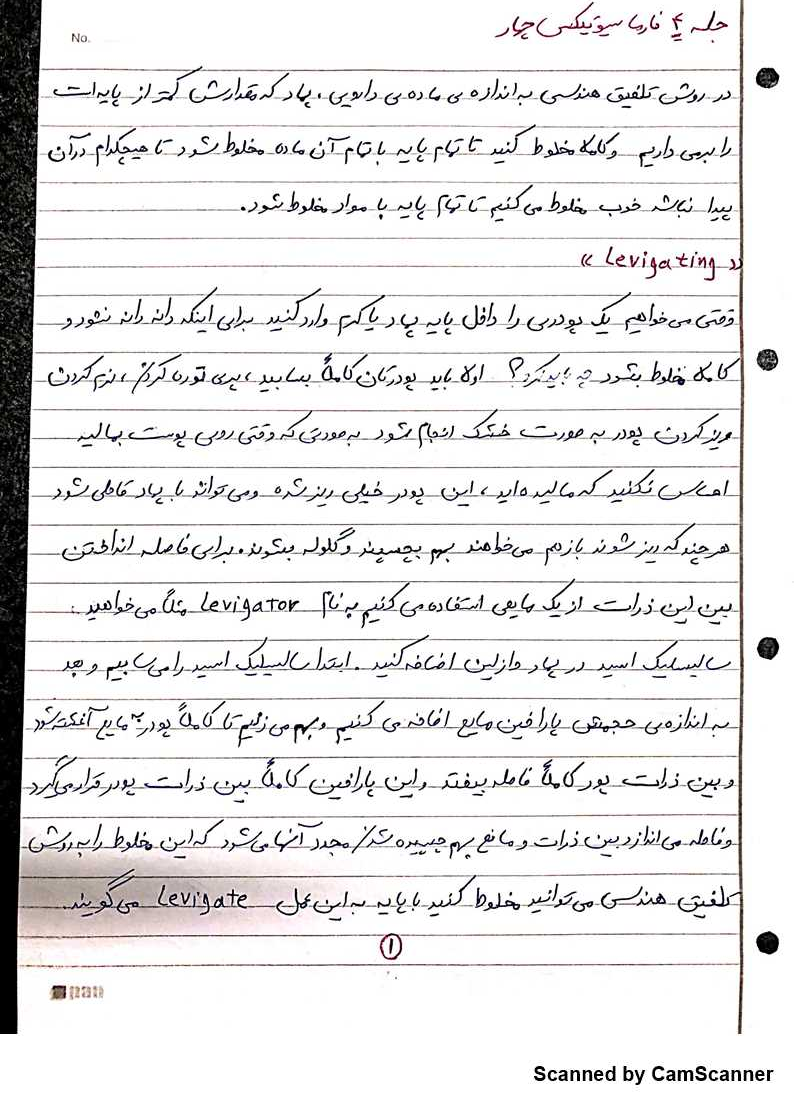 جلسه ۴ فارماسیوتیکس چهار
No.
در روش تلفیق هندسی به اندازه ی ماده ی دارویی، پماد که مقدارش کمتر از پایه است
را برمی داریم و کاملا مخلوط کنید تا تمام پایه با تمام آن ماده مخلوط شود تا هیچکدام در آن
پیدا نباشد خوب مخلوط می کنیم تا تمام پایه با مواد مخلوط شود.
« Levigating »
وقتی می خواهیم یک پودری را داخل پایه پماد یا کرم وارد کنید برای اینکه دانه دانه نشود و
کاملا مخلوط بشود چه باید کرد؟ اولا باید پودرتان کاملاً بسابید، نرم کردن
و ریز کردن پودر به صورت خشک انجام شود به صورتی که وقتی روی پوست بمالید
احساس نکنید که مالیده اید، این پودر خیلی ریز شده و می تواند با پماد قاطی شود
هر چند که ریز شوند بازهم می خواهند بهم بچسبند و گلوله بشوند. برای فاصله انداختن
بین این ذرات از یک مایعی استفاده می کنیم به نام Levigator مثلاً می خواهید:
سالیسلیک اسید در پماد وازلین اضافه کنید. ابتدا سالیسیلیک اسید را می سابیم و بعد
به اندازه ی حجمش پارافین مایع اضافه می کنیم و بهم می زنیم تا کاملاً پودر به مایع آغشته شود
و بین ذرات پودر کاملاً فاصله بیفتد و این پارافین کاملاً بین ذرات پودر قرار می گیرد
و فاصله می اندازد بین ذرات و مانع بهم چسبیده شدن مجدد آنها می شود که این مخلوط را به روش
تلفیق هندسی می توانید مخلوط کنید با پایه به این عمل Levigate می گویند.
۱
Scanned by CamScanner